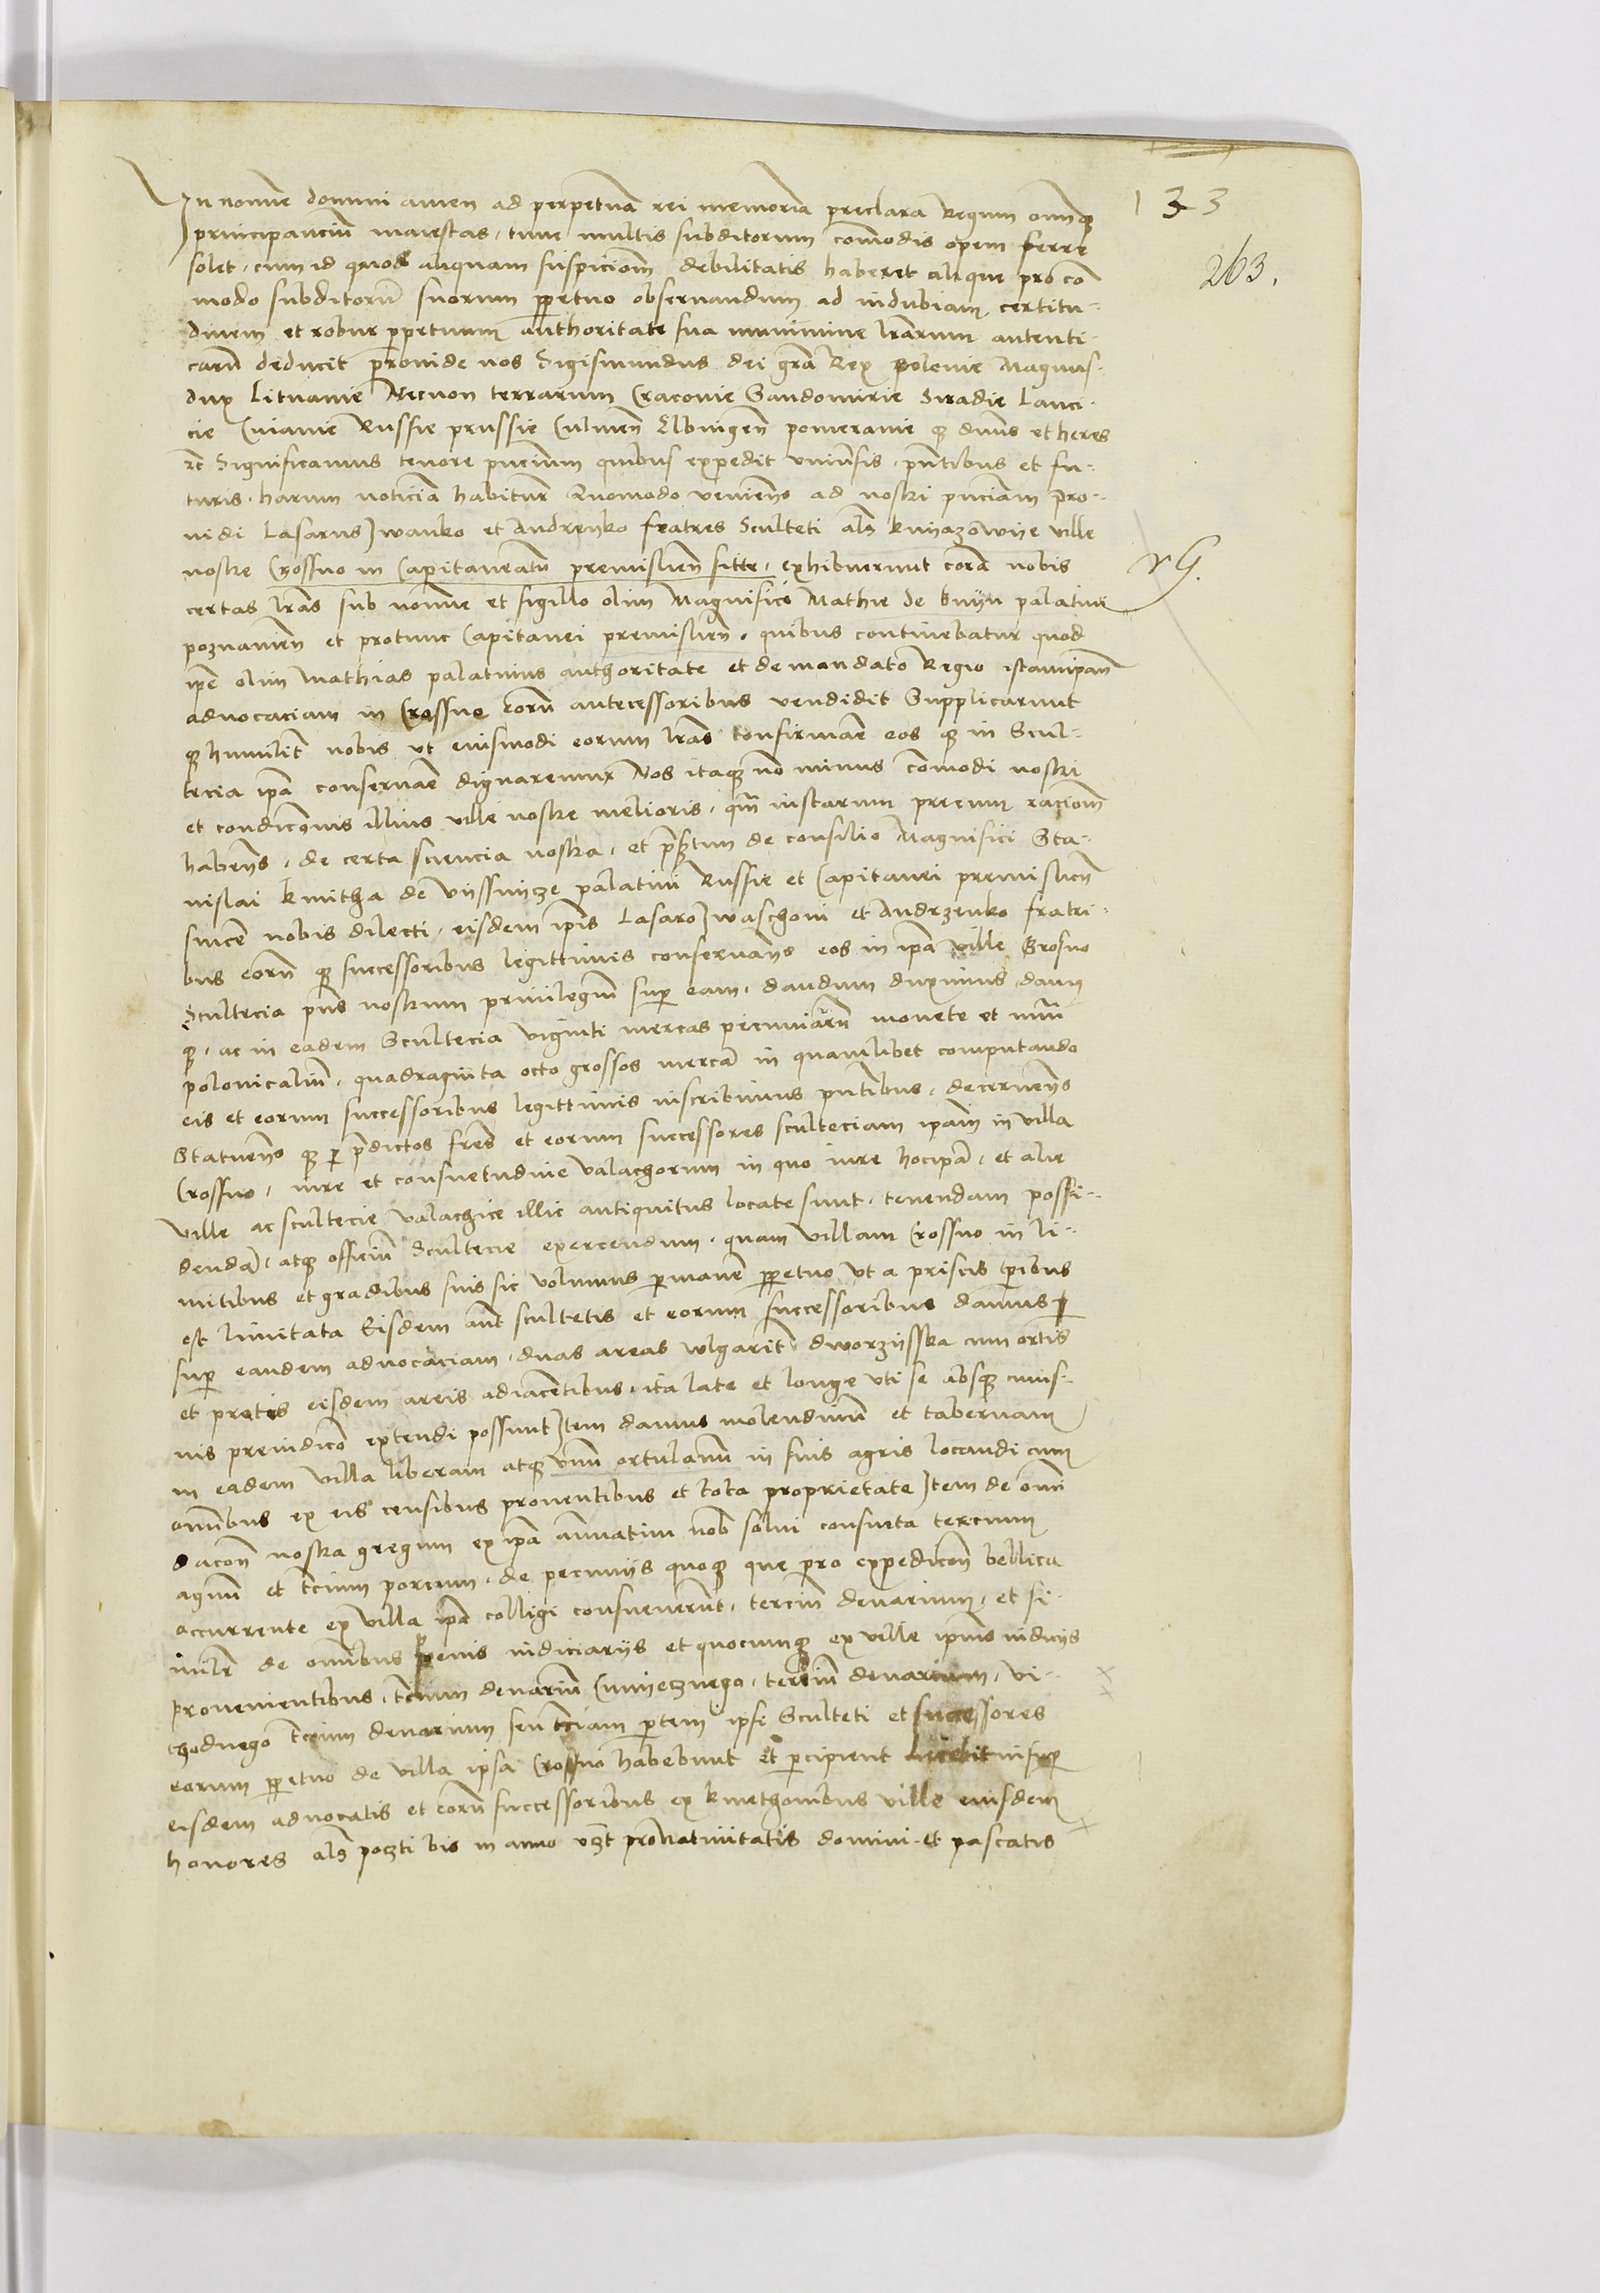 133
263.
In nomine domini amen ad perpetuã rei memoriã preclara Regum omniq̃
principanciũ maiestas, tunc multis subditorum comodis opem ferre
solet, cum id quod aliquam suspicionẽ debilitatis haberet alique pro co
modo subditorũ suorum ppetuo obseruandum ad indubiam certitu-
dinem et robur ppetuum authoritate sua munimine lrarum autenti-
carũ deducit proinde nos Sigismundus dei grã Rex polonie Magnus-
dux Lituanie Necnon terrarum Cracouie Sandomirie Siradie Lanci-
cie Cuiauie Russie prussie Culmeñ Elbingeñ pomeranie q̃ dnus et heres
zc̃ Significamus tenore pñcium quibus expedit vniuersis, pñtibus et fu-
turis, harum noticiã habitur̃ Quomodo venieñs ad nostri pñciam pro-
uidi Lasarus Jwanko et Andreyko fratres Sculteti als̃ knyazowye ville
nostre Crossno in Capitaneatũ premislieñ site, exhibuerunt corã nobis
certas lrãs sub nomine et sigillo olim Magnifici Mathie de bnyn palatini
poznanieñ et protunc Capitanei premislieñ, quibus continebatur quod
ipe olim Mathias palatinus authoritate et de mandato Regio istamipam̃
aduocaciam in Crossno eorũ antecessoribus vendidit Supplicarunt
q̃ humilit̃ nobis vt eiusmodi eorum lrãs confirmar̃e eos q̃ in Scul-
tecia ipã conseruare dignaremur Nos itaq̃ nõ minus comodi nostri
et condicõnis illius ville nostre melioris, qm̃ iustarum precum racionẽ
habeñs, de certa sciencia nostra, et pr̃tim de consilio Magnifici Sta-
nislai kmitha de vyssnycze palatini Russie et Capitanei premislieñ
sincẽ nobis dilecti, eisdem ipis Lasaro Jwaschoni et Andrzeyko fratri-
bus eorũ q̃ successoribus legittimis conseruañs eos in ipã ville Crosno
Scultecia pñs nostrum priuilegiũ sup eam, dandum duximus dam̃
q̃, ac in eadem Scultecia viginti mercas pecuniarũ monete et nũi
polonicaliũ, quadraginta octo grossos mercã in quamlibet computando
eis et eorum successoribus legittimis inscribimus pñtibus, decerneñs
Statueñs q̃ p p̃dictos fres̃ et eorum successores sculteciam ipam̃ in villa
Crossno, iure et consuetudine valachorum in quo iure hec ipã, et alie
ville ac scultecie valachice illic antiquitus locate sunt, tenendam possi-
dendã, atq̃ officiũ Scultecie exercendum, quam villam Crossno in li-
mitibus et gradibus suis sic volumus pmanẽ ppetuo vt a priscis tpibus
est limitata Eisdem aũt scultetis et eorum successoribus damus
sup eandem aduocaciam, duas areas vlgarit̃ dworzysska cum ortis
et pratis eisdem areis adiacẽtibus, ita late et longe vti se absq̃ cuius-
uis preiudicõ extendi possunt Jtem damus molendinũ et tabernam
in eadem villa liberam atq̃ vnũ ortulanũ in suis agris locandi cum
omibus ex eis censibus prouentibus et tota proprietate Jtem de omi
dacoñ nostra gregum ex ipã annuatim nob̃ solui consueta tercium
agnũ et t̃cium porcum, de pecuniis quoq̃ que pro expedicoñ bellica
occurrente ex villa ipã colligi consueuerũt, terciũ denarium, et si-
milr̃ de omibus penis iudiciariis et quocumq̃ ex ville ipius iudiciis
prouenientibus, t̃cium denariũ Cunyczuego, terciũ denarium, vi-
thodnego t̃cium denarium seu t̃ciam ptem ipsi Sculteti et successores
eorum ppetuo de villa ipsa Crossno habebunt et pcipient licebit insup
eisdem aduocatis et eorũ successoribus ex kmethonibus ville eiusdem
honores als̃ poczti bis in anno vz̃t pro Natiuitatis domini et pascatis